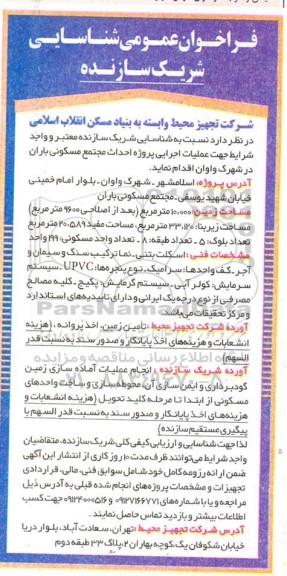 فراخوان عمومی شناسایی
شریک سازنده
شرکت تجهیز محیط وابسته به بنیاد مسکن انقلاب اسلامی
در نظر دارد نسبت به شناسایی شریک سازنده معتبر و واجد
شرایط جهت عملیات اجرایی پروژه احداث مجتمع مسکونی باران
در شهرک واوان اقدام نماید.
آدرس پروژه: اسلامشهر ـ شهرک واوان ـ بلوار امام خمینی
خیابان شهید یوسفی ـ مجتمع مسکونی باران
مساحت زمین: ۱۰،۰۰۰ مترمربع (بعد از اصلاحی ۹۶۰۰ متر مربع)
مساحت زیربنا: ۳۳،۱۲۰ مترمربع، مساحت مفید ۲۰،۵۸۹ مترمربع
تعداد بلوک: ۵ ـ تعداد طبقه: ۸ ـ تعداد واحد مسکونی: ۱۹۹ واحد
مشخصات فنی: اسکلت بتنی ـ نما ترکیب سنگ و سیمان و
آجر ـ کف واحدها: سرامیک ـ نوع پنجره‌ها: UPVC ـ سیستم
سرمایش: کولر آبی ـ سیستم گرمایش: پکیج ـ کلیه مصالح
مصرفی از نوع درجه یک ایرانی و دارای تاییدیه‌های استاندارد
و مرکز تحقیقات می‌باشد.
آورده شرکت تجهیز محیط: تأمین زمین، اخذ پروانه، (هزینه
انشعابات و هزینه‌های اخذ پایانکار و صدور سند به نسبت قدر
السهم)
آورده شریک سازنده: انجام عملیات آماده سازی زمین
گودبرداری و ایمن سازی آن، محوطه‌سازی و ساخت واحدهای
مسکونی از ابتدا تا مرحله کلید تحویل (هزینه انشعابات و
هزینه‌های اخذ پایانکار و صدور سند به نسبت قدر السهم با
پیگیری مستقیم سازنده)
لذا جهت شناسایی و ارزیابی کیفی کلی شریک سازنده، متقاضیان
واجد شرایط می‌توانند ظرف مدت ۱۰ روز کاری از انتشار این آگهی
ضمن ارائه رزومه کامل خود شامل سوابق فنی، مالی، قراردادی
تجهیزات و مشخصات پروژه‌های انجام شده قبلی به آدرس ذیل
مراجعه و یا با شماره‌های ۰۹۱۲۷۱۶۶۷۷۱ و ۰۹۱۲۴۰۰۰۵۱۶ جهت کسب
اطلاعات بیشتر و بازدید تماس حاصل نمایند.
آدرس شرکت تجهیز محیط: تهران، سعادت آباد، بلوار دریا
خیابان شکوفان یک، کوچه بهاران ۲، پلاک ۳۳ طبقه دوم